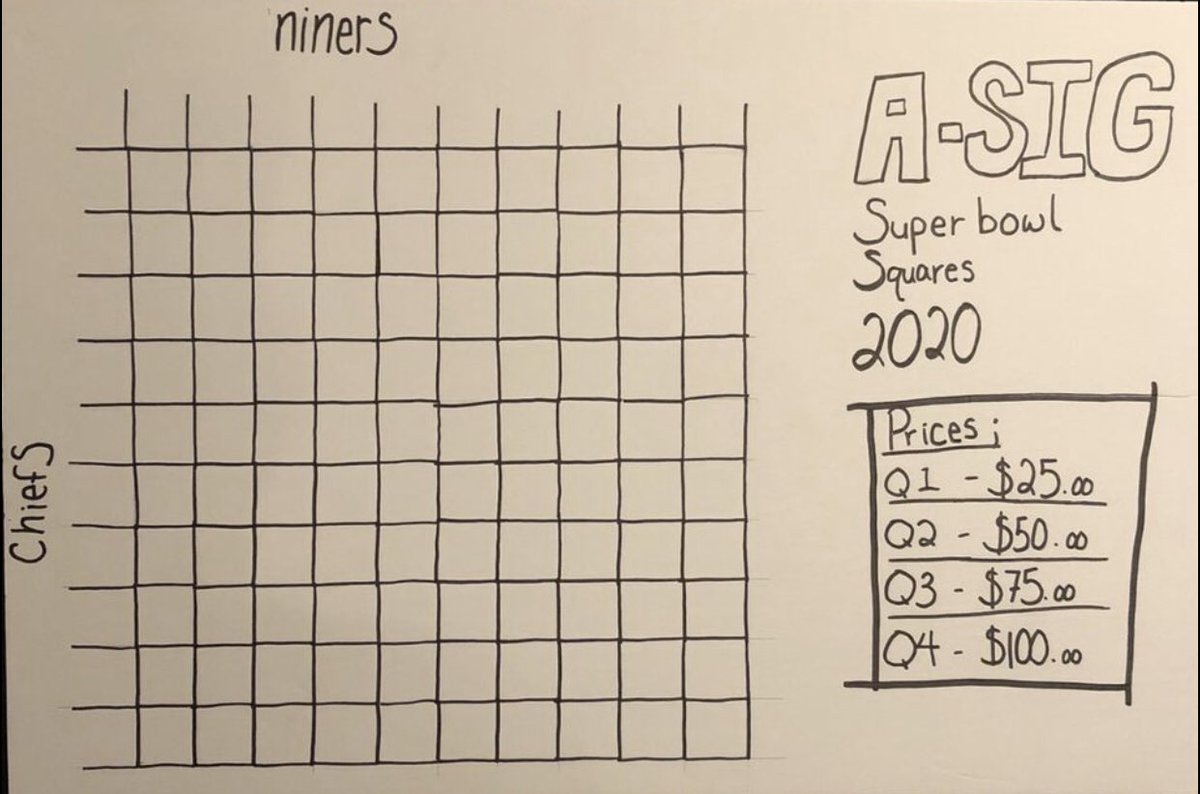 niners
Chiefs
A-SIG
Super bowl
Squares
2020
Prices;
Q1 - $25.00
Q2 - $50.00
Q3 - $75.00
Q4 - $100.00